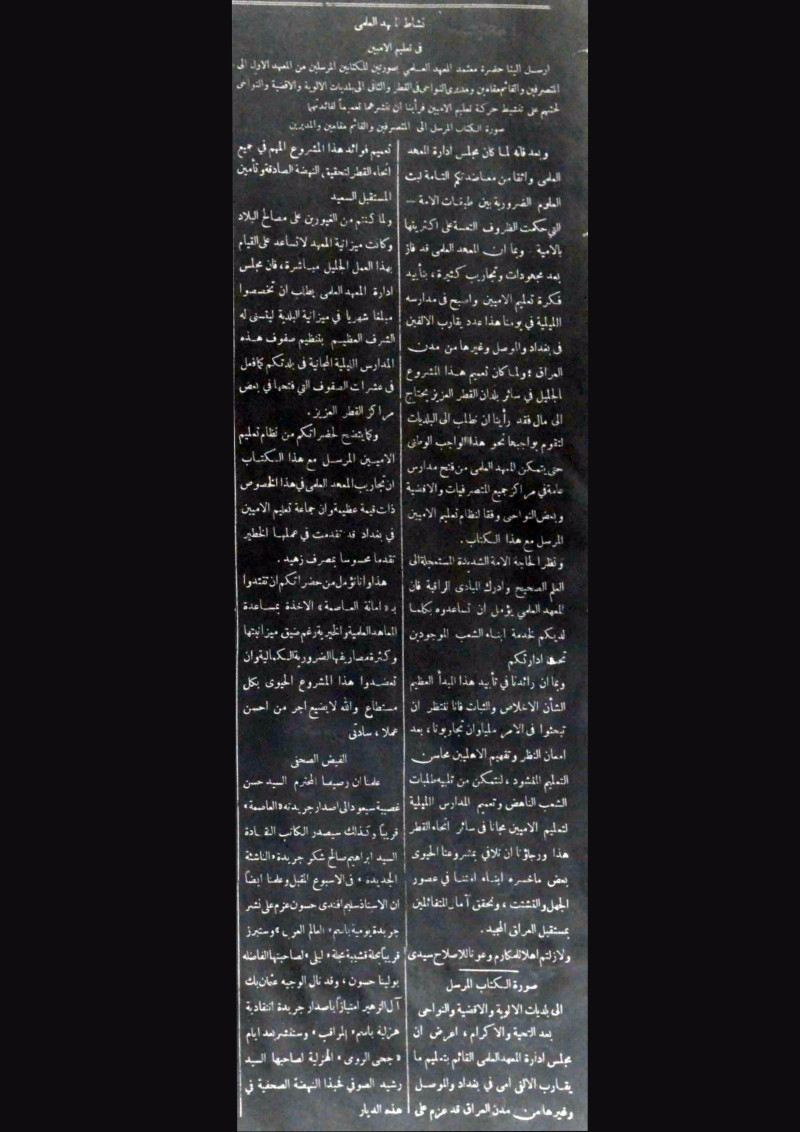 نشاط المعهد العلمي
في تعليم الاميين
ارسل الينا حضرة معتمد المعهد العلمي بصورتين للكتابين المرسلين من المعهد الاول الى
المتصرفين والقائم مقامين ومديري النواحي في القطر والثاني الى بلديات الالوية والاقضية والنواحي
لحثهم على تنشيط حركة تعليم الاميين فرأينا ان ننشرهما تعميماً لفائدتهما
صورة الكتاب المرسل الى المتصرفين والقائم مقامين والمديرين
وبعد فانه لما كان مجلس ادارة المعهد
العلمي واثقا من معاضدتكم التامة لبث
العلوم الضرورية بين طبقات الامة —
التي حكمت الظروف التعسة على اكثريتها
بالامية . وبما ان المعهد العلمي قد فاز
بعد مجهودات وتجاريب كثيرة ، بتأييد
فكرة تعليم الاميين واصبح في مدارسه
الليلية في يومنا هذا عدد يقارب الالفين
في بغداد والموصل وغيرها من مدن
العراق ، ولما كان تعميم هذا المشروع
الجليل في سائر بلدان القطر العزيز يحتاج
الى مال فقد رأينا ان نطلب الى البلديات
لتقوم بواجبها نحو هذا الواجب الوطني
حتى يتمكن المعهد العلمي من فتح مدارس
عامة في مراكز جميع المتصرفيات والاقضية
وبعض النواحي وفقا لنظام تعليم الاميين
المرسل مع هذا الكتاب .
ونظرا لحاجة الامة الشديدة المستعجلة الى
العلم الصحيح وادراك المبادئ الراقية فان
المعهد العلمي يؤمل ان تساعدوه بكلما
لديكم لخدمة ابناء الشعب الموجودين
تحت ادارتكم
وبما ان رائدنا في تأييد هذا المبدأ العظيم
الشأن الاخلاص والثبات فاننا ننتظر ان
تبحثوا في الامر مليا وان تجاوبونا ، بعد
امعان النظر وتفهيم الاهليين محاسن
التعليم المنشود ، لنتمكن من تلبيه طلبات
الشعب الناهض وتعميم المدارس الليلية
لتعليم الاميين مجانا في سائر انحاء القطر
هذا ورجاؤنا ان نلاقي بمشروعنا الحيوي
بعض ماخسره ابناء امتنا في عصور
الجهل والتشتت ، ونحقق آمال المتفائلين
بمستقبل العراق المجيد .
ولازلتم اهلا للمكارم وعونا للاصلاح سيدي
صورة الكتاب المرسل
الى بلديات الالوية والاقضية والنواحي
بعد التحية والاكرام ، اعرض ان
مجلس ادارة المعهد العلمي القائم بتعليم ما
يقارب الالفي امي في بغداد والموصل
وغيرها من مدن العراق قد عزم على
تعميم فوائد هذا المشروع المهم في جميع
أنحاء القطر لتحقيق النهضة الصادقة وتأمين
المستقبل السعيد
ولما كنتم من الغيورين على مصالح البلاد
وكانت ميزانية المعهد لاتساعد على القيام
بهذا العمل الجليل مباشرة ، فان مجلس
ادارة المعهد العلمي يطلب ان تخصصوا
مبلغا شهريا في ميزانية البلدية ليتسنى له
الشرف العظيم بتنظيم صفوف هذه
المدارس الليلية المجانية في بلدتكم كما فعل
في عشرات الصفوف التي فتحها في بعض
مراكز القطر العزيز .
وكما يتضح لحضراتكم من نظام تعليم
الاميين المرسل مع هذا الكتاب
ان تجاريب المعهد العلمي في هذا الخصوص
ذات قيمة عظيمة وان جماعة تعليم الاميين
في بغداد قد تقدمت في عملها الخطير
تقدما محسوسا بمصرف زهيد .
هذا واننا نؤمل من حضراتكم ان تقتدوا
بـ «امانة العاصمة» الاخذة بمساعدة
المعاهد العلمية والخيرية رغم ضيق ميزانيتها
وكثرة مصاريفها الضرورية الكمالية وان
تعضدوا هذا المشروع الحيوي بكل
مستطاع والله لايضيع اجر من احسن
عملا ، سادتي
الفيض الصحفي
علمنا ان رصيفنا المحترم السيد حسن
غصيبة سيعود الى اصدار جريدته «العاصمة»
قريبا وكذلك سيصدر الكاتب النقادة
السيد ابراهيم صالح شكر جريدة «الناشئة
الجديدة» في الاسبوع المقبل وعلمنا ايضاً
ان الاستاذ سليم افندي حسون عزم على نشر
جريدة يومية باسم «العالم العربي» وستبرز
قريباً مجلة قشيبة مجلة «ليلى» لصاحبتها الفاضله
بولينا حسون ، وقد نال الوجيه عثمان بك
آل الزهير امتيازاً باصدار جريدة انتقادية
هزلية باسم «المراقب» وستنشر بعد ايام
«جحى الرومي» الهزلية لصاحبها السيد
رشيد الصوفي فحبذا النهضة الصحفية في
هذه الديار